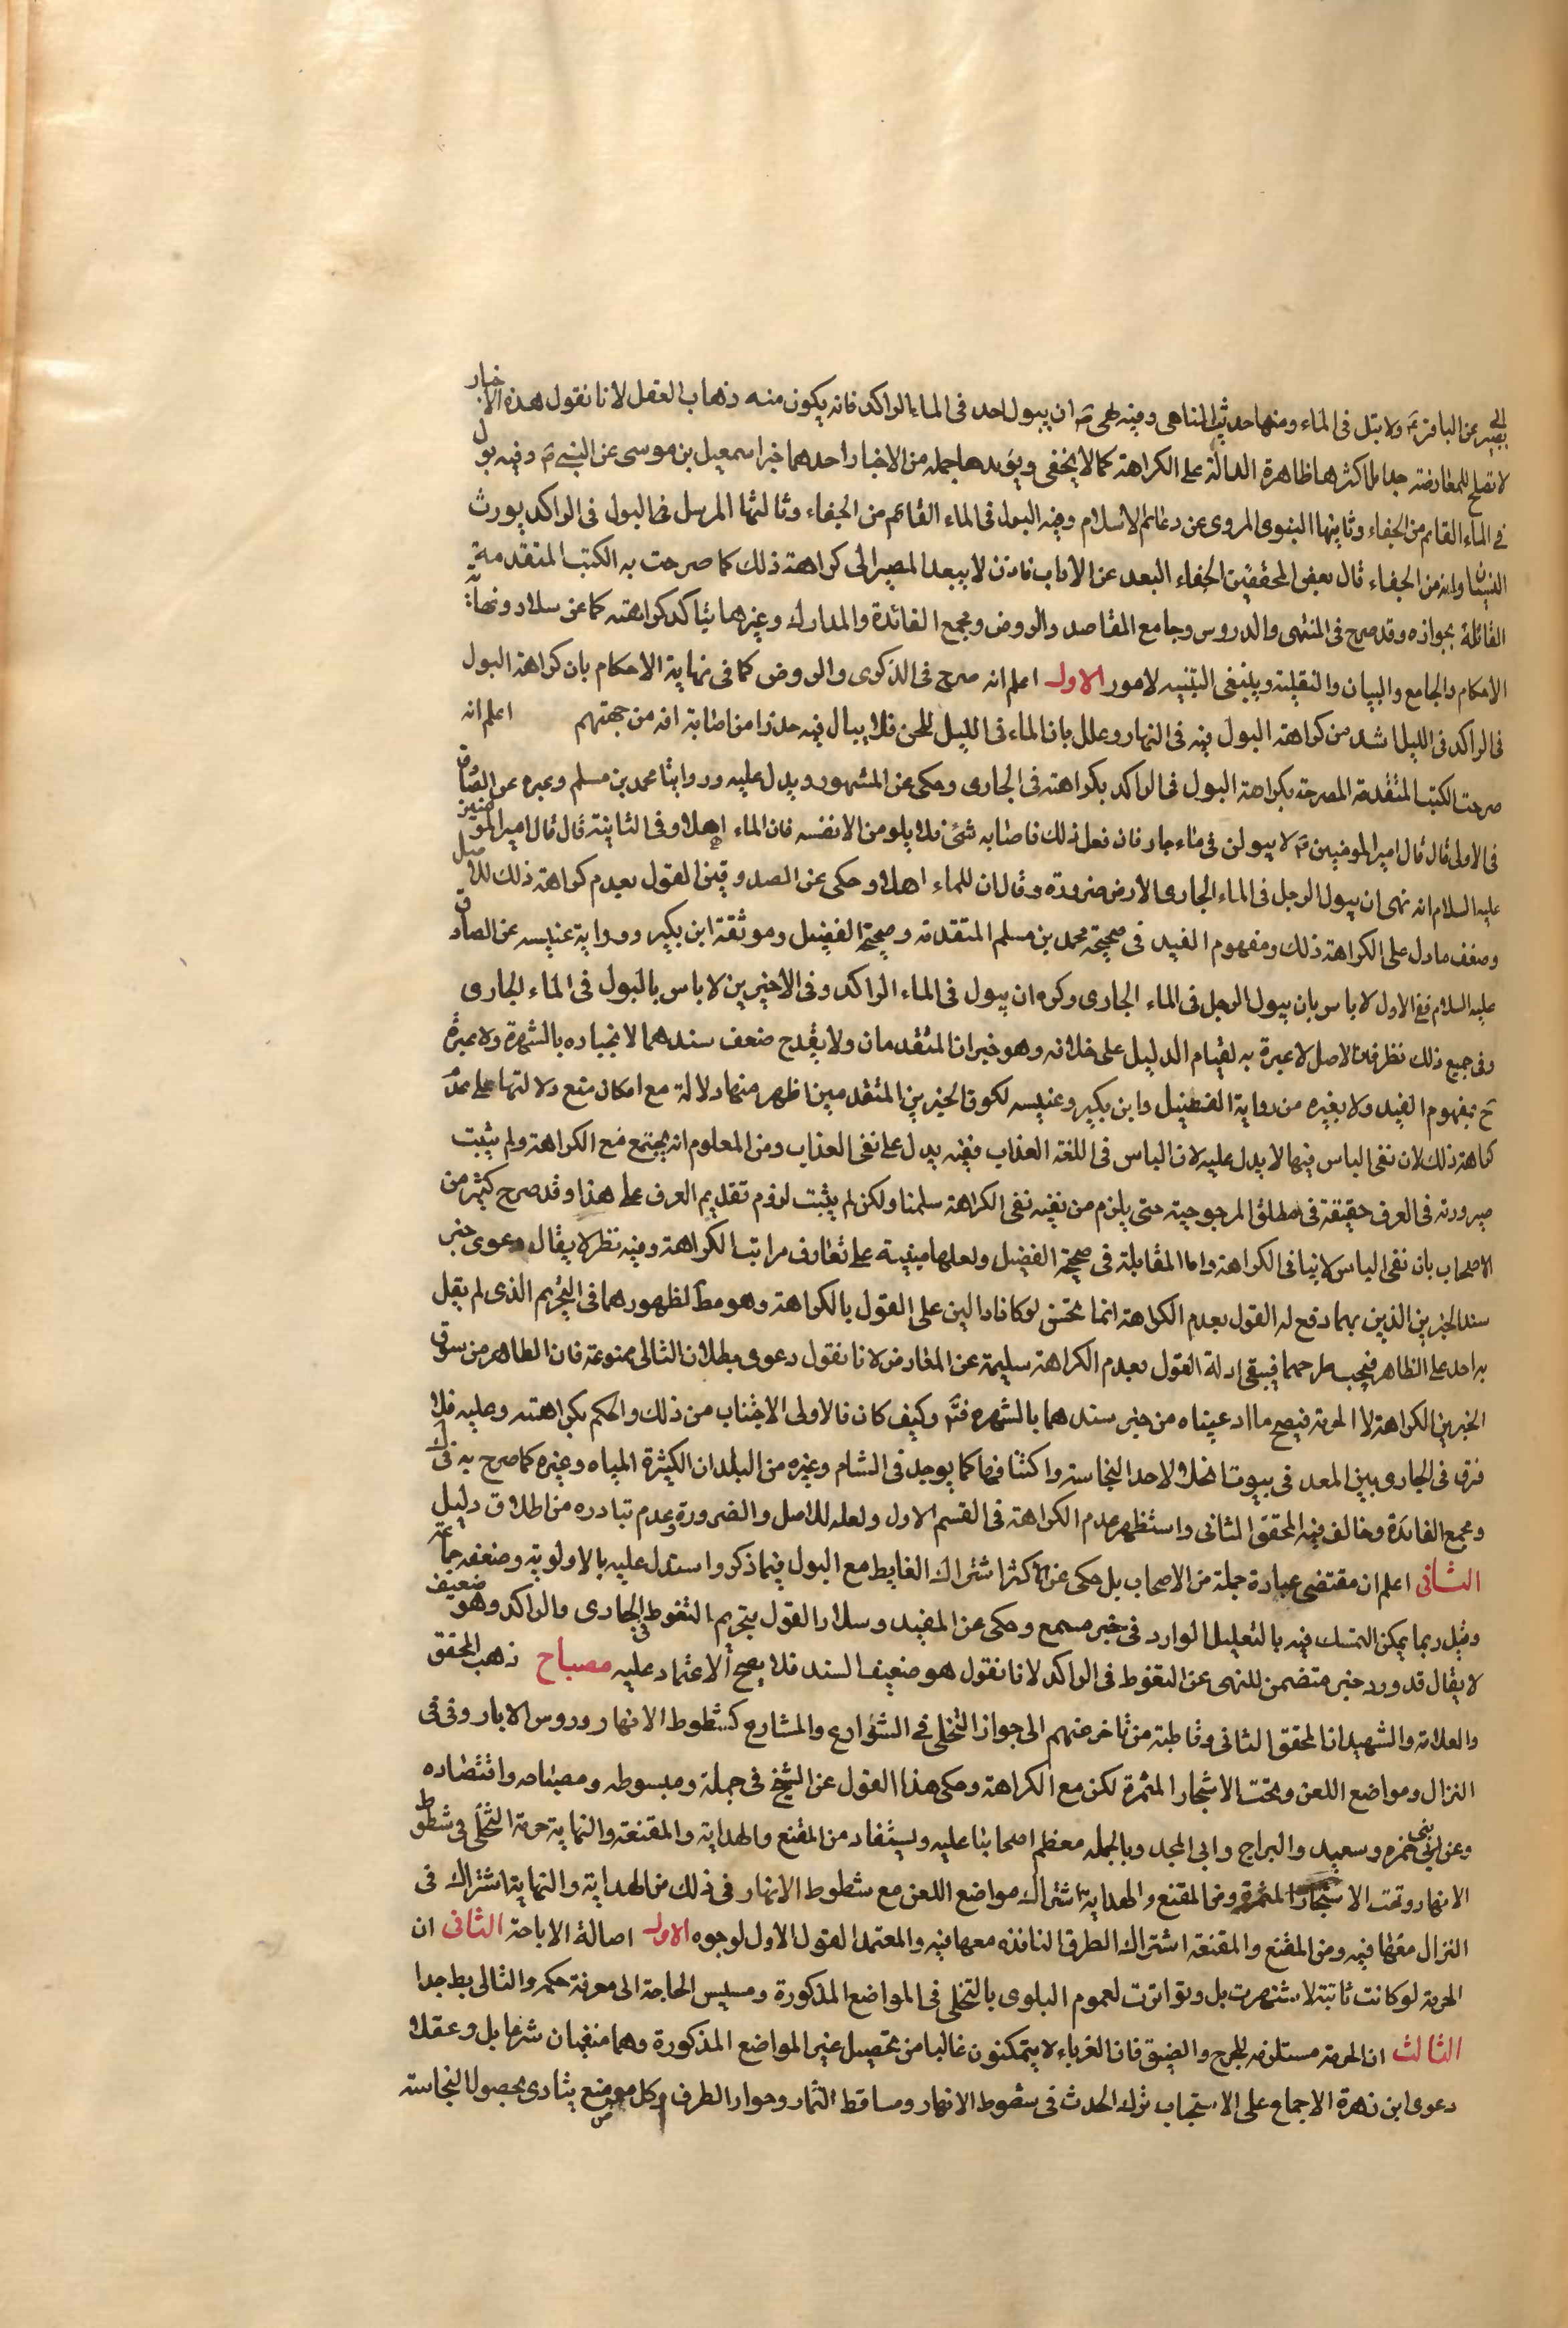 ابى بصير عن الباقر ع ولا تبل فى الماء ومنها حديث المناهى وفيه نهى ص ان يبول احد فى الماء الراكد فانه يكون منه ذهاب العقل لانا نقول هذه الاخبار
لا تصلح للمعارضة جدا بل اكثرها ظاهرة الدالة على الكراهة كما لا يخفى ويؤيدها جملة من الاخبار احدهما خبر اسمعيل بن موسى عن النبى ص وفيه بول
فى الماء القائم من الجفاء وثانيها النبوى المروى عن دعائم الاسلام وفيه البول فى الماء القائم من الجفاء وثالثها المرسل فى البول فى الراكد يورث
النسيان وانه من الجفاء قال بعض المحققين الجفاء البعد عن الاداب فاذن لا يبعد المصير الى كراهة ذلك كما صرحت به الكتب المتقدمة
القائلة بجوازه وقد صرح فى المنتهى والدروس وجامع المقاصد والروض ومجمع الفائدة والمدارك وغيرها بتاكد كراهته كما عن سلار ونهاية
الاحكام والجامع والبيان والنفلية وينبغى التنبيه لامور الاول اعلم انه صرح فى الذكرى والروض كما فى نهاية الاحكام بان كراهة البول
فى الراكد فى الليل اشد من كراهة البول فيه فى النهار وعلل بان الماء فى الليل للجن فلا يبال فيه حذرا من اصابة افة من جهتهم اعلم انه
صرحت الكتب المتقدمة المصرحة بكراهة البول فى الراكد بكراهته فى الجارى وحكى عن المشهور ويدل عليه وروايتا محمد بن مسلم وغيره عن الصادق
فى الاولى قال قال امير المومنين ع لا يبولن فى ماء جار فان فعل ذلك فاصابه شئ فلا يلومن الا نفسه فان الماء اهلا وفى الثانية قال قال امير المومنين
عليه السلام انه نهى ان يبول الرجل فى الماء الجارى الا من ضرورة وقال ان للماء اهلا وحكى عن الصدوقين القول بعدم كراهة ذلك للاصل
وضعف ما دل على الكراهة ذلك ومفهوم القيد فى صحيحة محمد بن مسلم المتقدمة وصحيحة الفضيل وموثقة ابن بكير ورواية عنبسه عن الصادق
عليه السلام ففى الاول لا باس بان يبول الرجل فى الماء الجارى وكره ان يبول فى الماء الراكد وفى الاخيرين لا باس بالبول فى الماء الجارى
وفى جميع ذلك نظر فان الاصل لا عبرة به لقيام الدليل على خلافه وهو خبران المتقدمان ولا يقدح ضعف سندهما لانجباره بالشهرة ولا عبرة
ح بمفهوم القيد ولا بغيره من رواية الفضيل وابن بكير وعنبسه لكون الخبرين المتقدمين اظهر منها دلالة مع امكان منع دلالتها على عدم
كراهة ذلك لان نفى الباس فيها لا يدل عليه لان الباس فى اللغة العذاب فنفيه يدل على نفى العذاب ومن المعلوم انه يجتمع مع الكراهة ولم يثبت
صيرورته فى العرف حقيقة فى مطلق المرجوحية حتى يلزم من نفيه نفى الكراهة سلمنا ولكن لم يثبت لزوم تقديم العرف على هذا وقد صرح كثير من
الاصحاب بان نفى الباس لا ينافى الكراهة واما المقابلة فى صحيحة الفضيل ولعلها مبنية على تفاوت مراتب الكراهة وفيه نظر لا يقال دعوى جبر
سند الخبرين الذين بهما دفع له القول بعدم الكراهة انما تحسن لو كانا دالين على القول بالكراهة وهو مط لظهورهما فى التحريم الذى لم يقل
به احد على الظاهر فيجب طرحهما فيبقى ادلة القول بعدم الكراهة سليمة عن المعارض لانا نقول دعوى بطلان التالى ممنوعة فان الظاهر من سوق
الخبرين الكراهة لا الحرمة فيصح ما ادعيناه من جبر سندهما بالشهره فتم وكيف كان فالاولى الاجتناب من ذلك والحكم بكراهته وعليه فلا
فرق فى الجارى بين المعد فى بيوت الخلا لاحد النجاسة واكتنافها كما يوجد فى الشام وغيره من البلدان الكثيرة المياه وغيره كما صرح به فى لك
ومجمع الفائدة وخالف فيه المحقق الثانى واستظهر عدم الكراهة فى القسم الاول ولعله للاصل والضرورة وعدم تبادره من اطلاق دليل
الثانى اعلم ان مقتضى عبارة جملة من الاصحاب بل حكى عن الاكثر اشتراك الغايط مع البول فيما ذكر واستدل عليه بالاولوية وضعفه جماعة
وقيل ربما يمكن التمسك فيه بالتعليل الوارد فى خبر مسمع وحكى عن المفيد وسلار القول بتحريم التغوط فى الجارى والراكد وهو ضعيف
لا يقال قد ورد خبر متضمن للنهى عن التغوط فى الراكد لانا نقول هو ضعيف السند فلا يصح الاعتماد عليه مصباح ذهب المحقق
والعلامة والشهيدان المحقق الثانى وقاطبة من تاخر عنهم الى جواز التخلى فى الشوارع والمشارع كشطوط الانهار وروس الابار وفى فى
النزال ومواضع اللعن وتحت الاشجار المثمرة لكن مع الكراهة وحكى هذا القول عن الشيخ فى جملة ومبسوطه ومصباحه واقتصاده
وعن ابنى حمزه وسعيد والبراج وابى المجد وبالجملة معظم اصحابنا عليه ويستفاد من المقنع والهداية والمقنعة والنهاية حرمة التخلى فى شطوط
الانهار وتحت الاشجار المثمرة ومن المقنع والهداية اشتراك مواضع اللعن مع شطوط الانهار فى ذلك من الهداية والنهاية اشتراك فى
النزال معها فيه ومن المقنع والمقنعة اشتراك الطرق النافذه معها فيه والمعتمد القول الاول لوجوه الاول اصالة الاباحة الثانى ان
الحرمة لو كانت ثابتة لاشتهرت بل وتواترت لعموم البلوى بالتخلى فى المواضع المذكورة ومسيس الحاجة الى معرفة حكمه والتالى بط جدا
الثالث ان الحرمة مستلزمه للحرج والضيق فان الغرباء لا يتمكنون غالبا من تحصيل غير المواضع المذكورة وهما منفيان شرعا بل وعقلا
دعوى ابن زهرة الاجماع على الاستحباب ترك الحدث فى شطوط الانهار ومساقط الثمار وجوار الطرق وكل موضع يتادى بحصول النجاسة